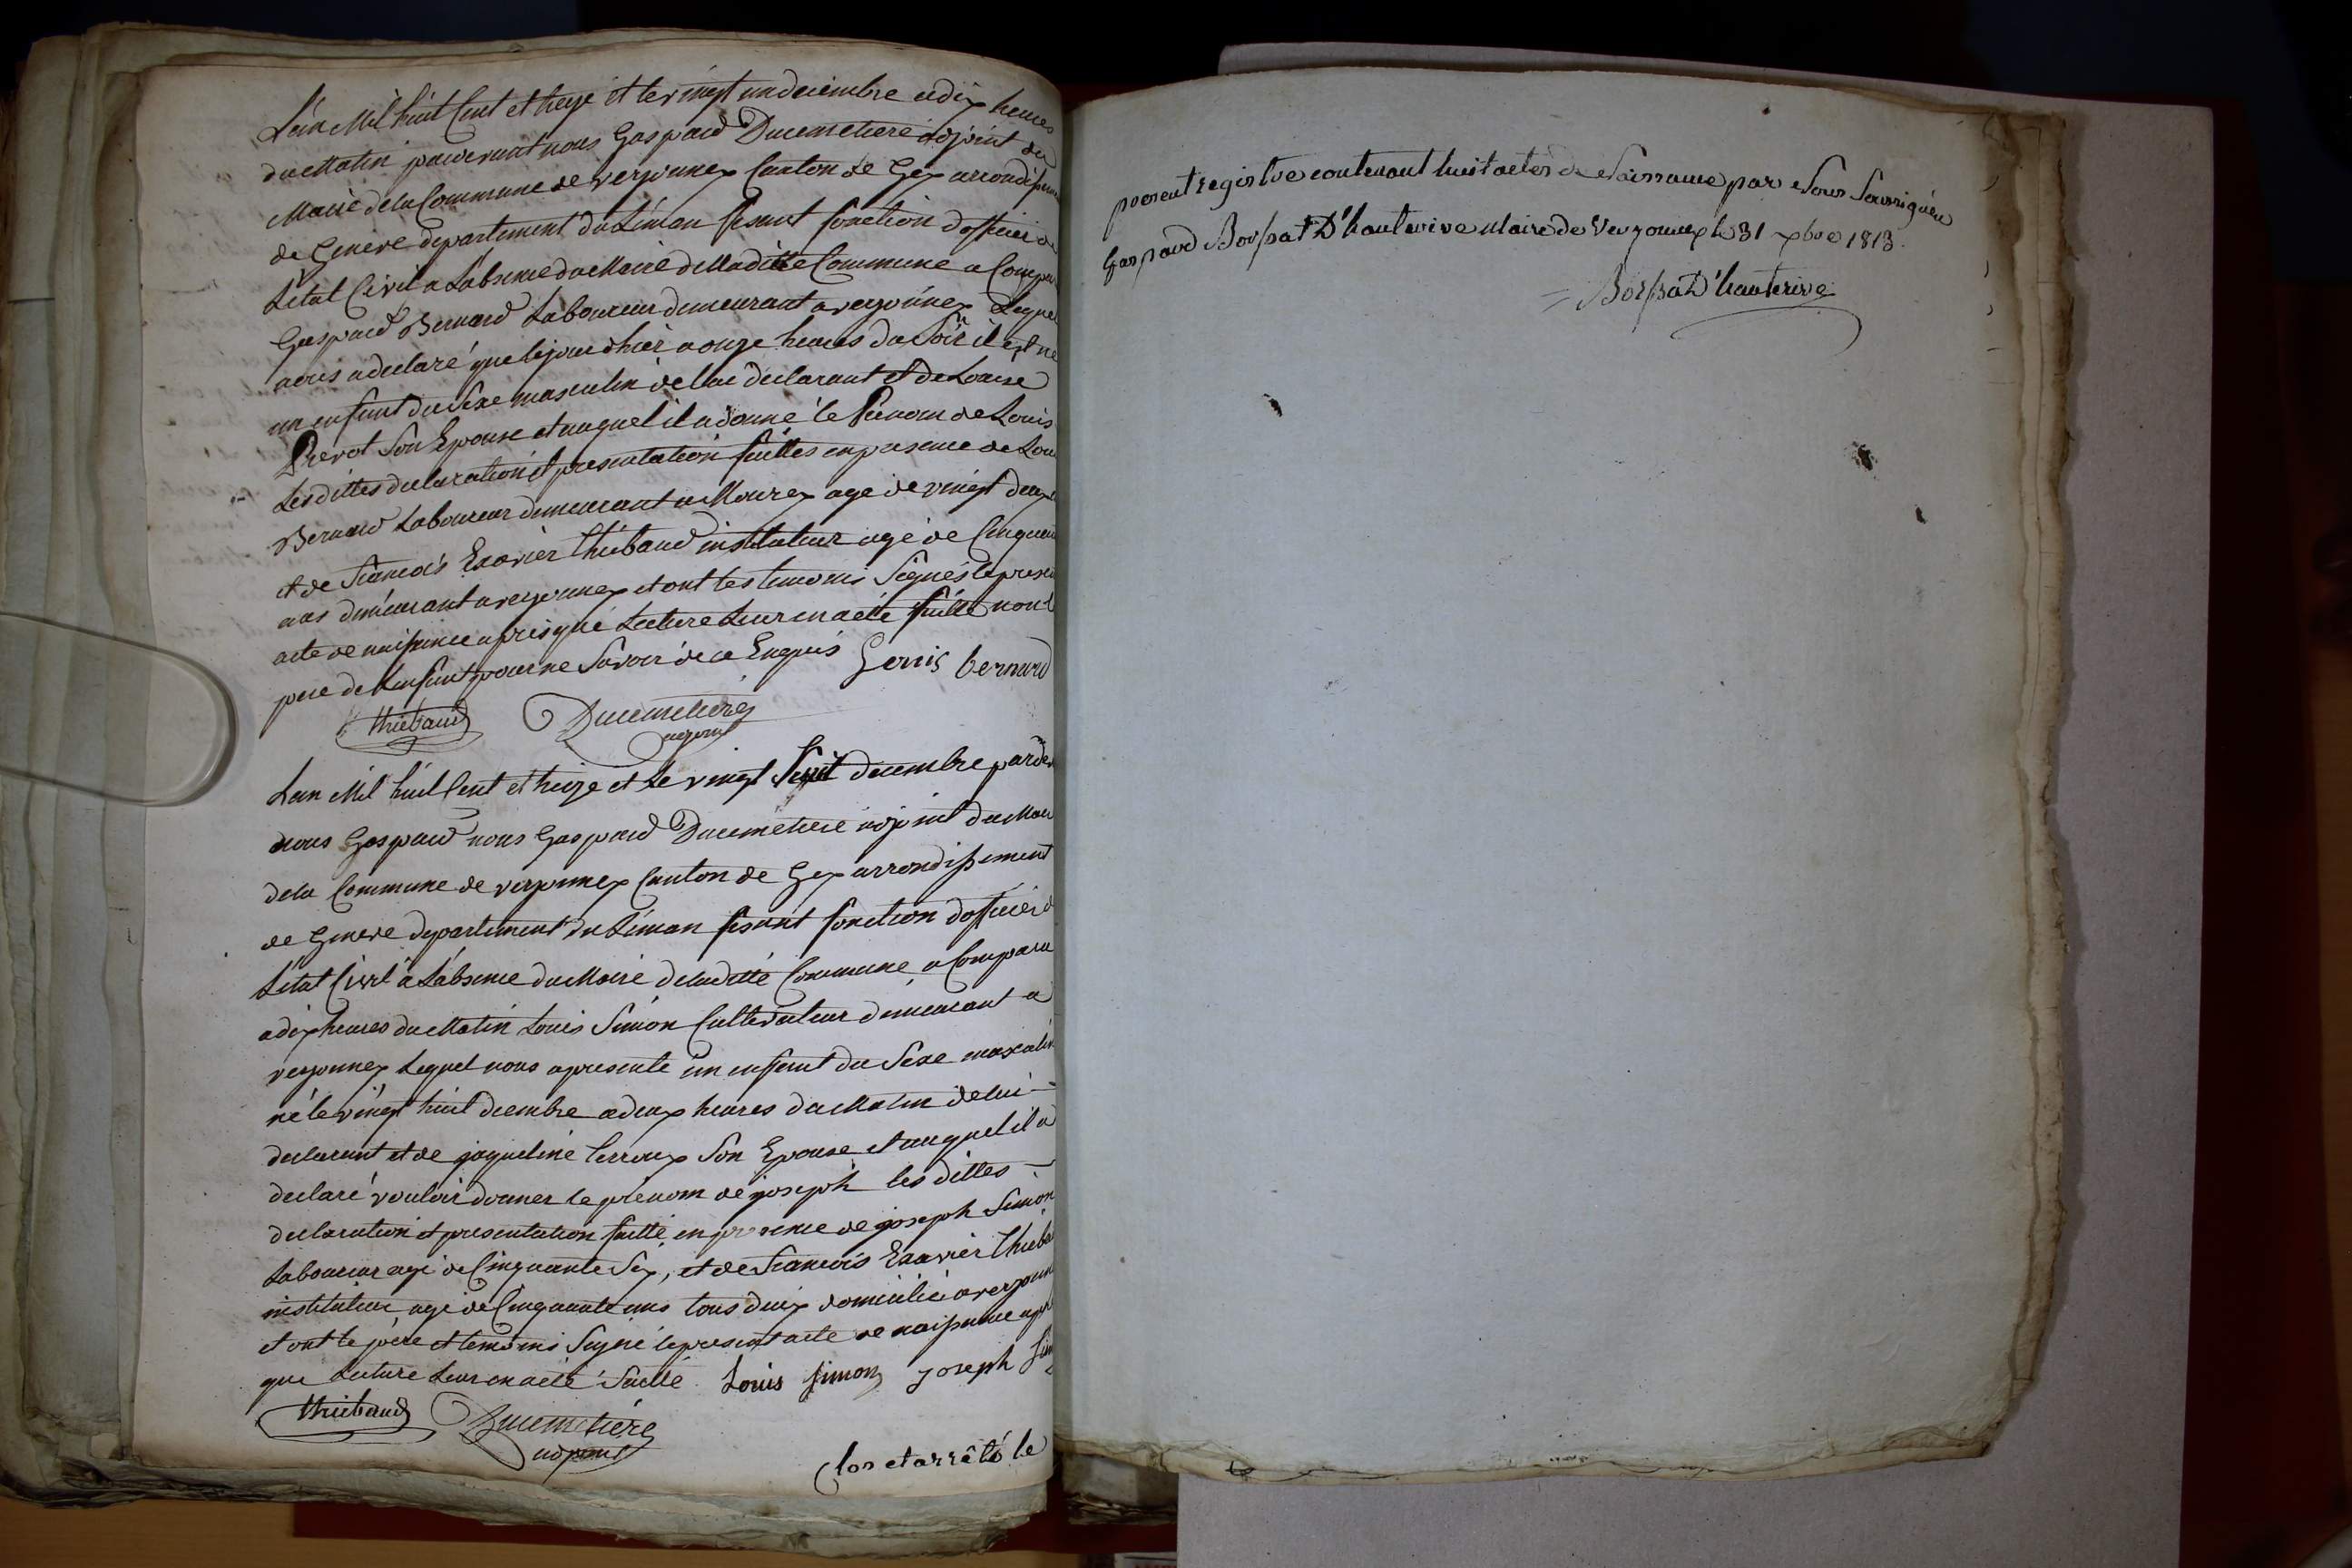 Lan Mil huit Cent et treize et le vingt un decembre a dix heures
du Matin pardevant nous Gaspard Ducimetiere adjoint du
Maire de la Commune de versonnex Canton de Gex arrondissem
de Geneve departement du Léman fesant fonction d'officier de
Létat Civil a Labsence du Maire de Laditte Commune a Compar
Gaspard Bernard Laboureur demeurant a versonnex Lequel
nous a declaré que le jour dhier a onze heures du Soir il est né
un enfant du Sexe masculin de lui declarant et de Louise
Prevot Son Epouse et auquel il a donné le Prenom de Louis
Lesdittes declaration et presentation faittes en presence de Lou
Bernard Laboureur demeurant a Mourex age de vingt deux
et de Francois Exavier Thiebaud instituteur agé de Cinquan
ans demeurant a versonnex et ont les temoins Signés le prese
acte de naissance apres que Lecture Leur en a été faitte non l
pere de Lenfant pour ne Savoir de ce Enquis Louis bernard
thiebaud Ducimetiere
adjoint
Lan Mil huit Cent et treize et Le vingt huit decembre parde
nous Gaspard nous Gaspard Ducimetiere adjoint du Mair
dela Commune de versonnex Canton de Gex arrondissement
de Geneve departement du Léman fesant fonction d'officier d
Létat Civil a Labsence du Maire de laditte Commune a Comparu
a dix heures du Matin Louis Simon Cultivateur demeurant a
versonnex Lequel nous a presenté un enfant du Sexe masculin
né le vingt huit decembre a deux heures du Matin de lui
declarant et de jaqueline Perroux Son Epouse et auquel il a
declaré vouloir donner le prenom de joseph les dittes
declaration et presentation faitte en presence de joseph Simon
Laboureur agé de Cinquante Six, et de Francois Exavier Thieba
instituteur agé de Cinquante ans tous deux domicilié a versonn
et ont le père et temoins Signé le present acte de naissance apr
que Lecture Leur en a été faitte Louis simon joseph sim
thiebaud Ducimetière
adjoint
Clos et arrêté le
present registre contenant huit actes de Naissance par Nous Soussigné
Gaspard Borssat D'hauterive Maire de Versonnex le 31 xbre 1813.
Borssat D'hauterive